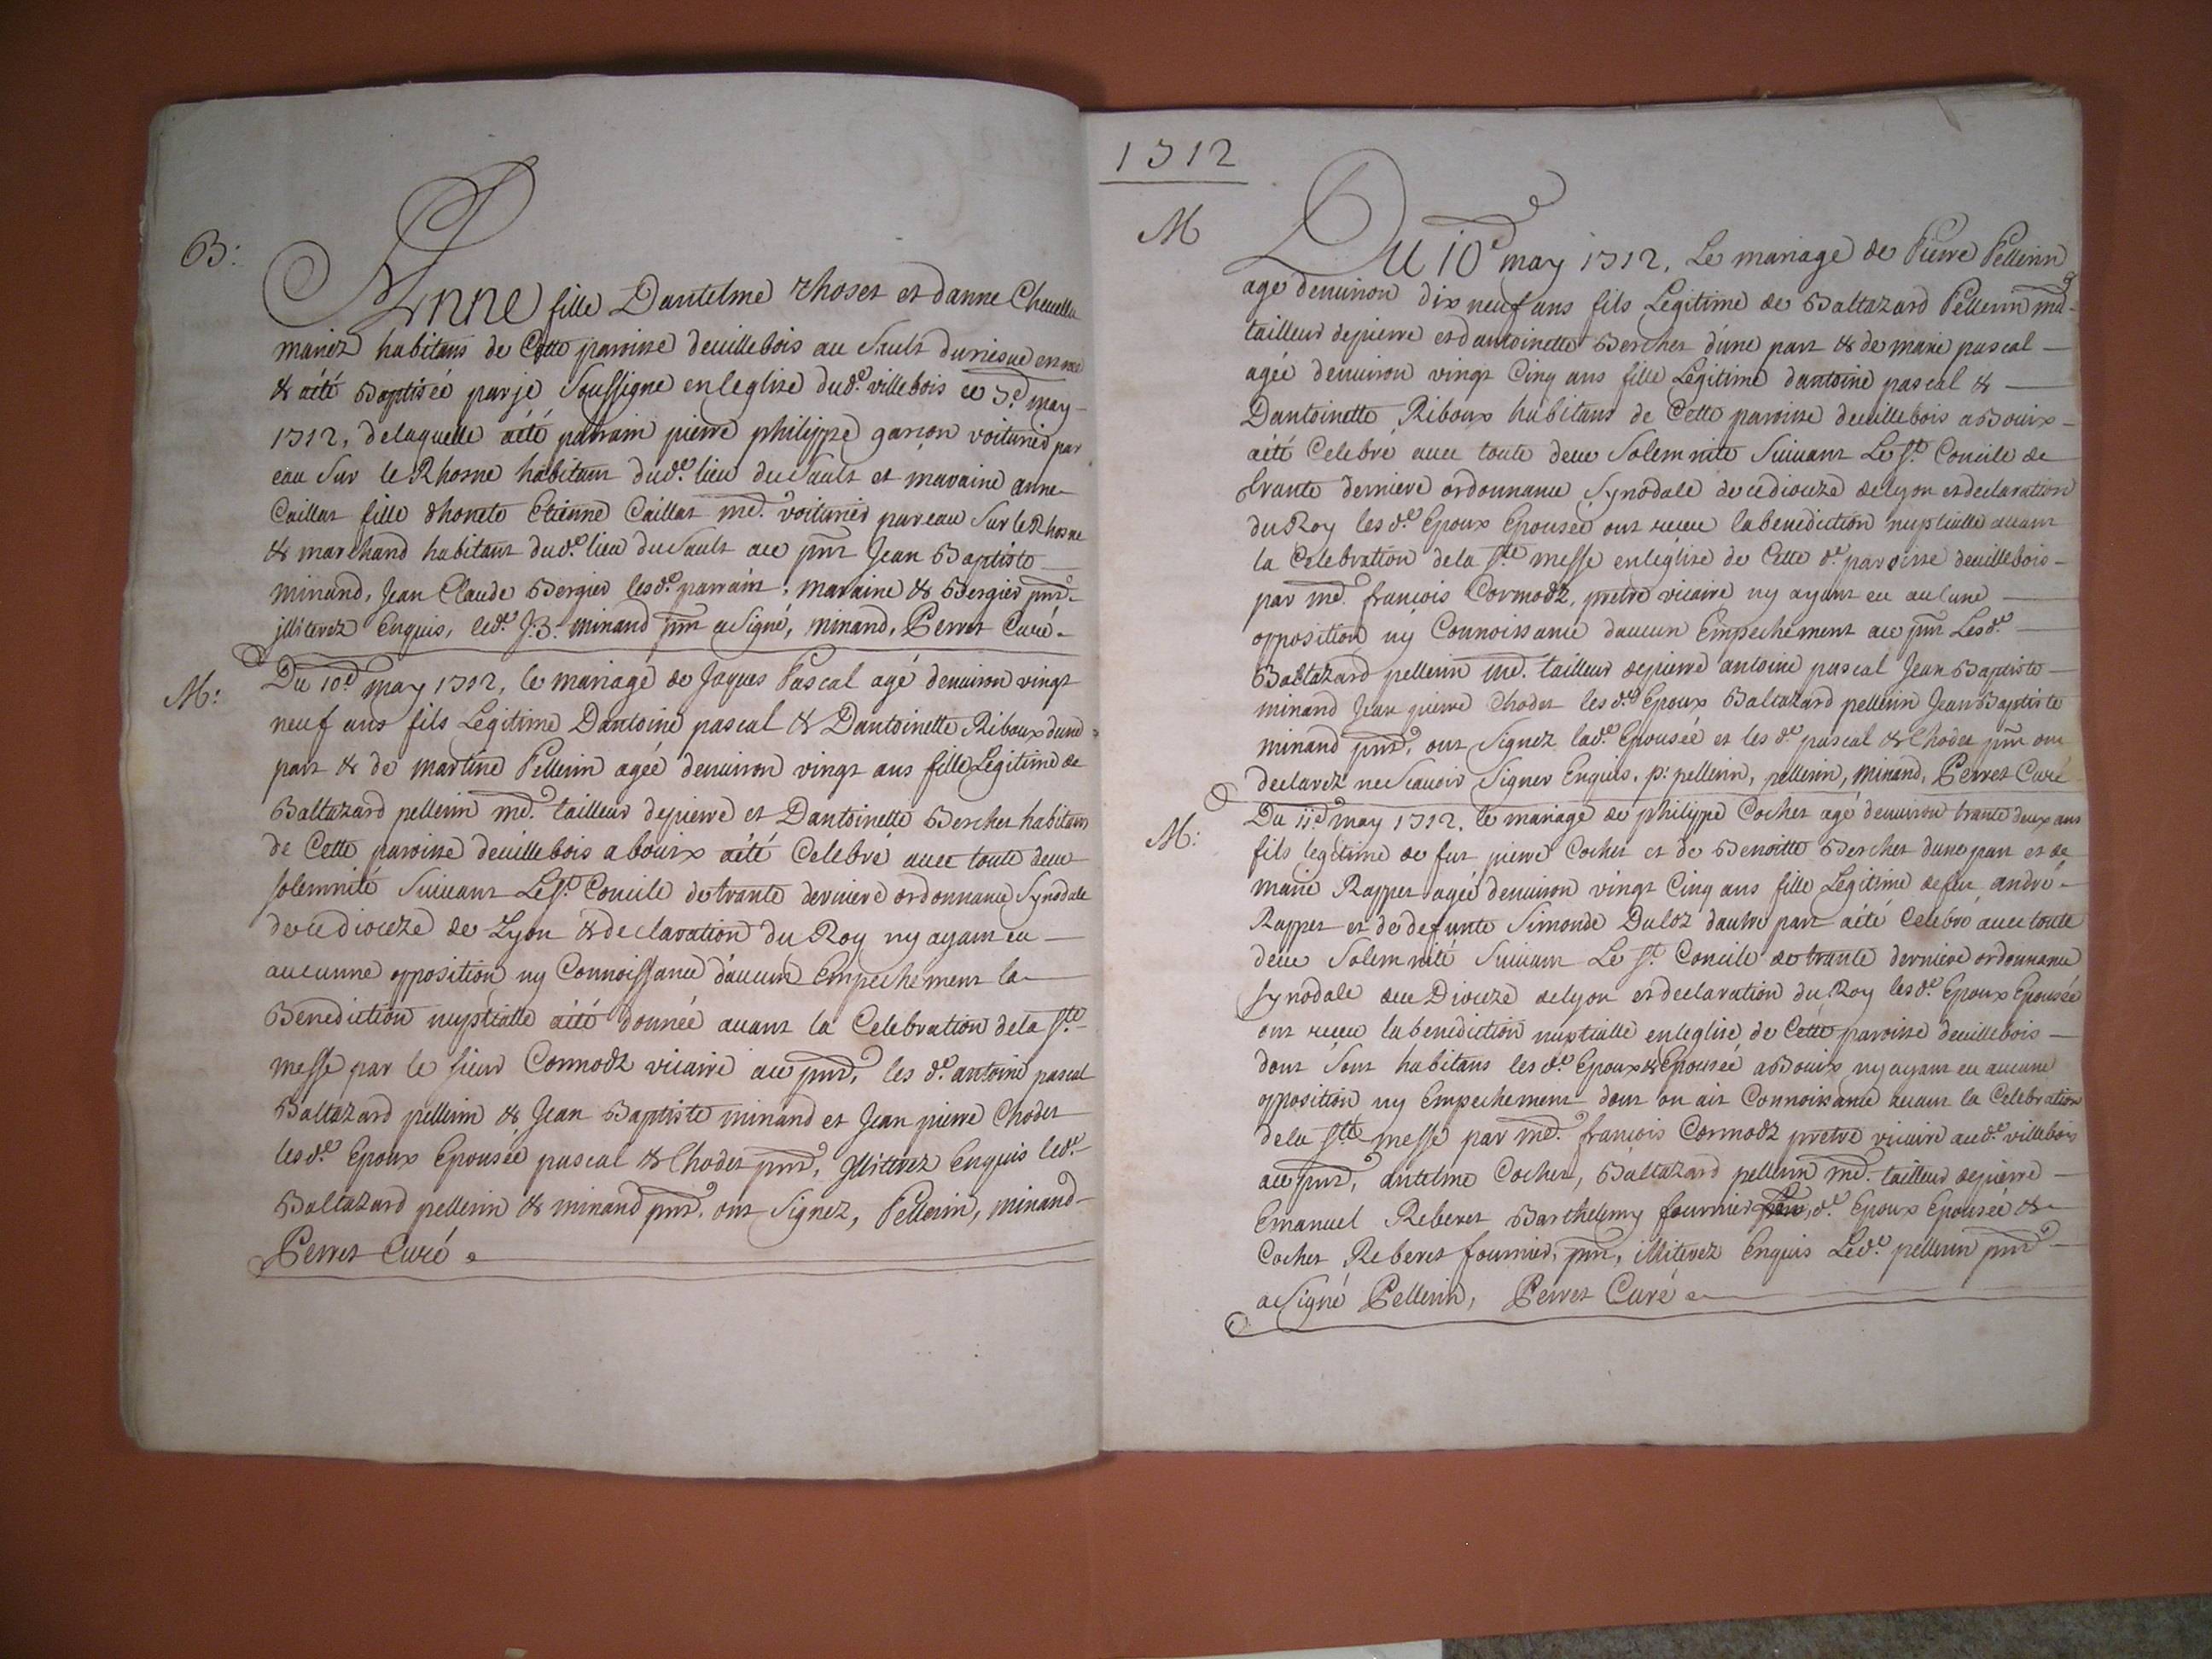 B:
Anne fille Dantelme Rhoset et danne Chevella
mariez habitans de Cette paroisse devillebois au Sault
& aété Baptisée par je Soussigne en leglise dud.^t villebois ce 7^e may
1712, de laquelle aété parrain pierre philippe garçon voiturier par
eau Sur le Rhosne habitant dud.^t lieu du Sault et maraine anne
Caillat fille dhonete Etienne Caillat m^e. voiturier par eau Sur le Rhosne
& marchand habitant dud.^t lieu du Sault ace pnt Jean Baptiste
minand, Jean Claude Bergier lesd.^t parrain, maraine & Bergier pnts.
illiterez Enquis, led.^t J.B. minand pnt a Signé, minand, Perret Curé.
M:
Du 10^e may 1712, le mariage de Jaques Pascal agé denviron vingt
neuf ans fils Legitime Dantoine pascal & Dantoinette Riboux dune
part & de martine Pellerin agée denviron vingt ans fille Legitime de
Baltazard pellerin m^e. tailleur de pierre et Dantoinette Berchet habitans
de Cette paroisse devillebois a bouix aété Celebré avec toute deue
solemnité Suivant Le S.^t Concile de trante derniere ordonnance Synodale
de ce dioceze de Lyon & declaration du Roy ny ayant eu
aucunne opposition ny Connoissance daucun Empechement la
Benediction nuptialle aété donnée avant la Celebration de la S^te.
messe par le sieur Cormodz vicaire ace pnts, les d.^t antoine pascal
Baltazard pellerin & Jean Baptiste minand et Jean pierre Chodet
lesd.^t Epoux Epousée pascal & Chodet pnts, Illiterez Enquis led.^t
Baltazard pellerin & minand pnts. ont Signez, Pellerin, minand
Perret Curé
1712
M
Du 10^e may 1712, Le mariage de Pierre Pellerin
age denviron dix neuf ans fils Legitime de Baltazard Pellerin m^e
tailleur de pierre et dantoinette Berchet d'une part & de marie pascal
agée denviron vingt Cinq ans fille Legitime dantoine pascal &
Dantoinette Riboux habitans de Cette paroisse devillebois a Bouix
aété Celebré avec toute deue Solemnite Suivant Le S.^t Concile de
trante derniere ordonnance Synodale de ce dioceze de lyon et declaration
du Roy les d.^t Epoux Epousée ont receu la benediction nuptialle avant
la Celebration de la S^te messe en leglise de Cette d.^e paroisse devillebois
par m^e. françois Cormodz, pretre vicaire ny ayant eu aucune
opposition ny Connoissance daucun Empechement ace pnt Les d.^t
Baltazard pellerin m^e. tailleur de pierre antoine pascal Jean Baptiste
minand Jean pierre Chodet les d.^ts Epoux Baltazard pellerin Jean Baptiste
minand pnts, ont Signez lad.^e Epousée et les d.^t pascal & Chodet pnts ont
declarez ne Scavoir Signer Enquis, p: pellerin, pellerin, minand, Perret Curé
M:
Du 11^e may 1712, le mariage de philippe Cochet agé denviron trante deux ans
fils legitime de fut pierre Cochet et de Benoitte Berchet dune part et de
marie Rappet agée denviron vingt Cinq ans fille Legitime de feu andré
Rappet et de defunte Simonde Duloz dautre part aété Celebré avec toute
deue Solemnité Suivant Le S.^t Concile de trante derniere ordonnance
synodale de ce Dioceze de lyon et declaration du Roy les d.^t Epoux Epousée
ont receu la benediction nuptialle en leglise de Cette paroisse devillebois
dont Sont habitans les d.^t Epoux & Epousée a Bouix ny ayant eu aucune
opposition ny Empechement dont on ait Connoissance avant la Celebration
de la S^te messe par m^e. françois Cormodz pretre vicaire aud.^t villebois
ace pnts, antelme Cochet, Baltazard pellerin m^e. tailleur de pierre
Emanuel Reberet Barthelemy fournier d.^t Epoux Epousée &
Cochet Reberet fournier, pnts, illiterez Enquis Led.^t pellerin pnt
a Signé Pellerin, Perret Curé